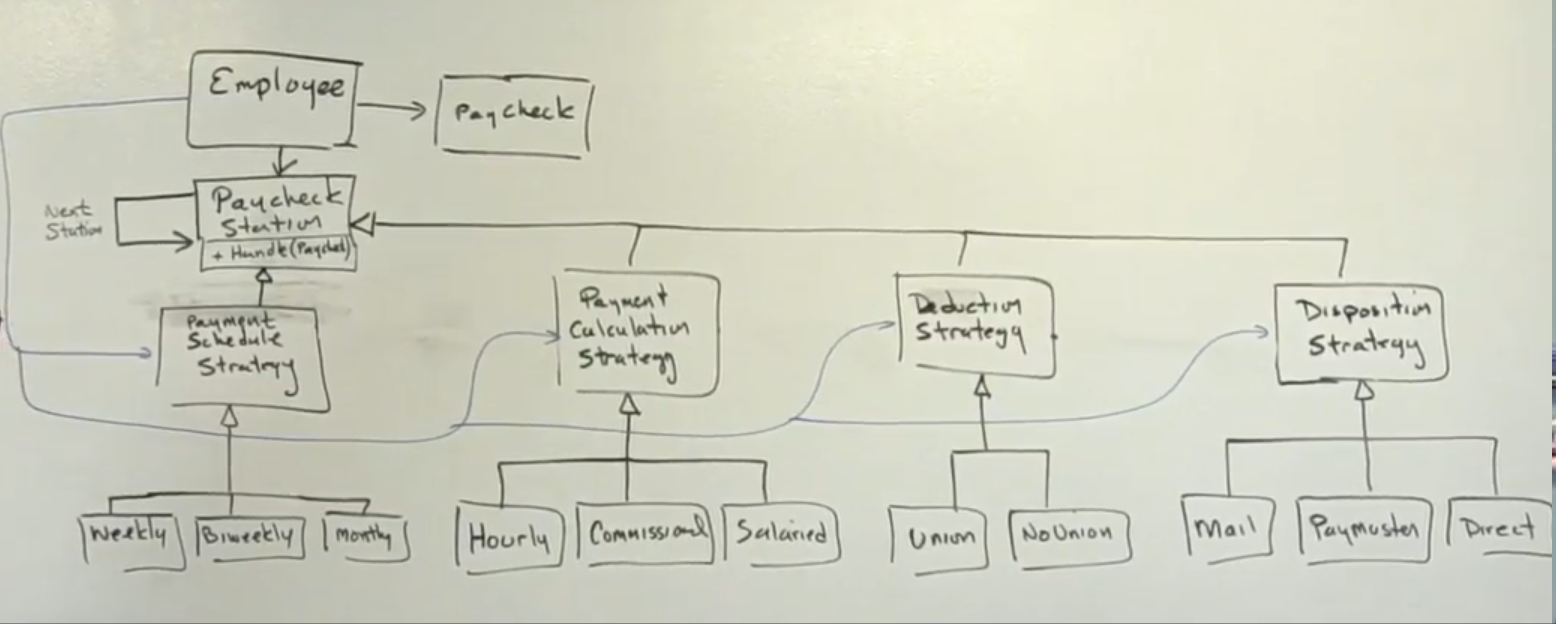 Employee
Paycheck
Paycheck
Station
+ Handle(Paycheck)
Next
Station
Payment
Schedule
Strategy
Payment
Calculation
Strategy
Deduction
Strategy
Disposition
Strategy
Weekly
Biweekly
Monthly
Hourly
Commissioned
Salaried
Union
NoUnion
Mail
Paymaster
Direct